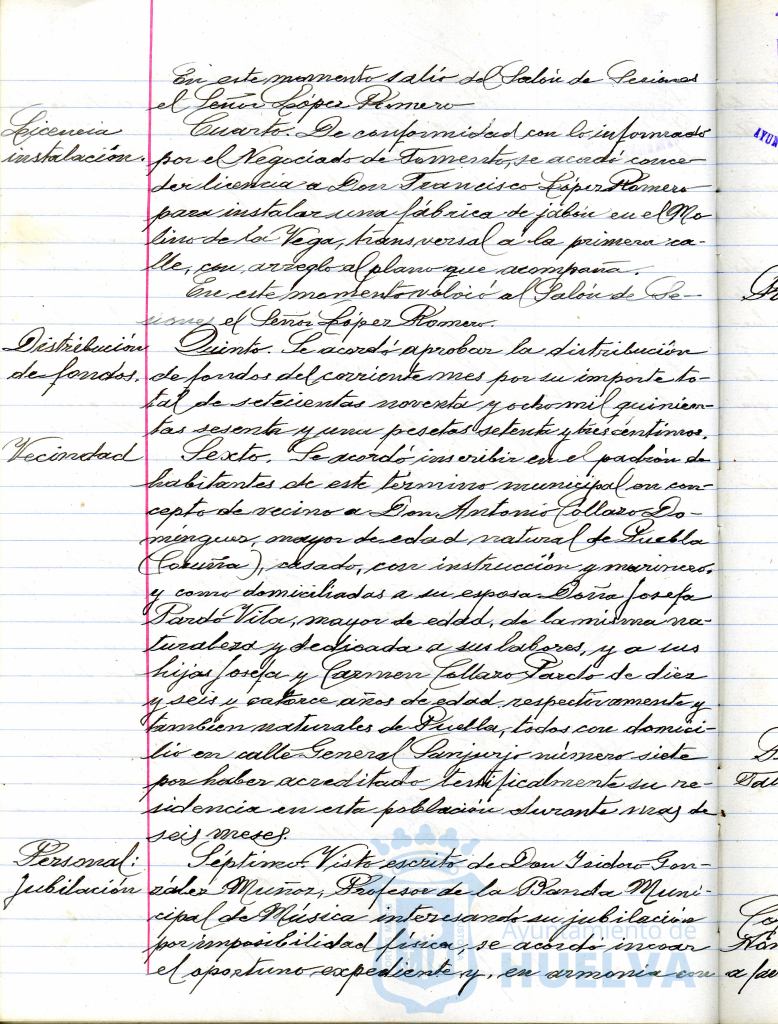 En este momento salió del Salón de Sesiones
el Señor López Romero
Licencia
instalación.
Cuarto. De conformidad con lo informado
por el Negociado de Fomento, se acordó conce-
der licencia a Don Francisco López Romero
para instalar una fábrica de jabón en el Mo-
lino de la Vega, transversal a la primera ca-
lle, con arreglo al plano que acompaña.
En este momento volvió al Salón de Se-
siones el Señor López Romero.
Distribución
de fondos.
Quinto. Se acordó aprobar la distribución
de fondos del corriente mes por su importe to-
tal de setecientas noventa y ocho mil quinien-
tas sesenta y una pesetas setenta y tres céntimos.
Vecindad
Sexto. Se acordó inscribir en el padrón de
habitantes de este término municipal en con-
cepto de vecino a Don Antonio Collazo Do-
mínguez, mayor de edad natural de Puebla
(Coruña), casado, con instrucción y marinero,
y como domiciliadas a su esposa Doña Josefa
Pardo Vila, mayor de edad, de la misma na-
turaleza y dedicada a sus labores, y a sus
hijas Josefa y Carmen Collazo Pardo de diez
y seis y catorce años de edad respectivamente y
tambien naturales de Puebla, todos con domici-
lio en calle General Sanjurjo número siete
por haber acreditado testificalmente su re-
sidencia en esta población durante mas de
seis meses.
Personal:
Jubilación
Séptimo. Visto escrito de Don Isidoro Gon-
zález Muñoz, Profesor de la Banda Muni-
cipal de Música interesando su jubilación
por imposibilidad física, se acordó incoar
el oportuno expediente y, en armonía con
Ayuntamiento de
HUELVA